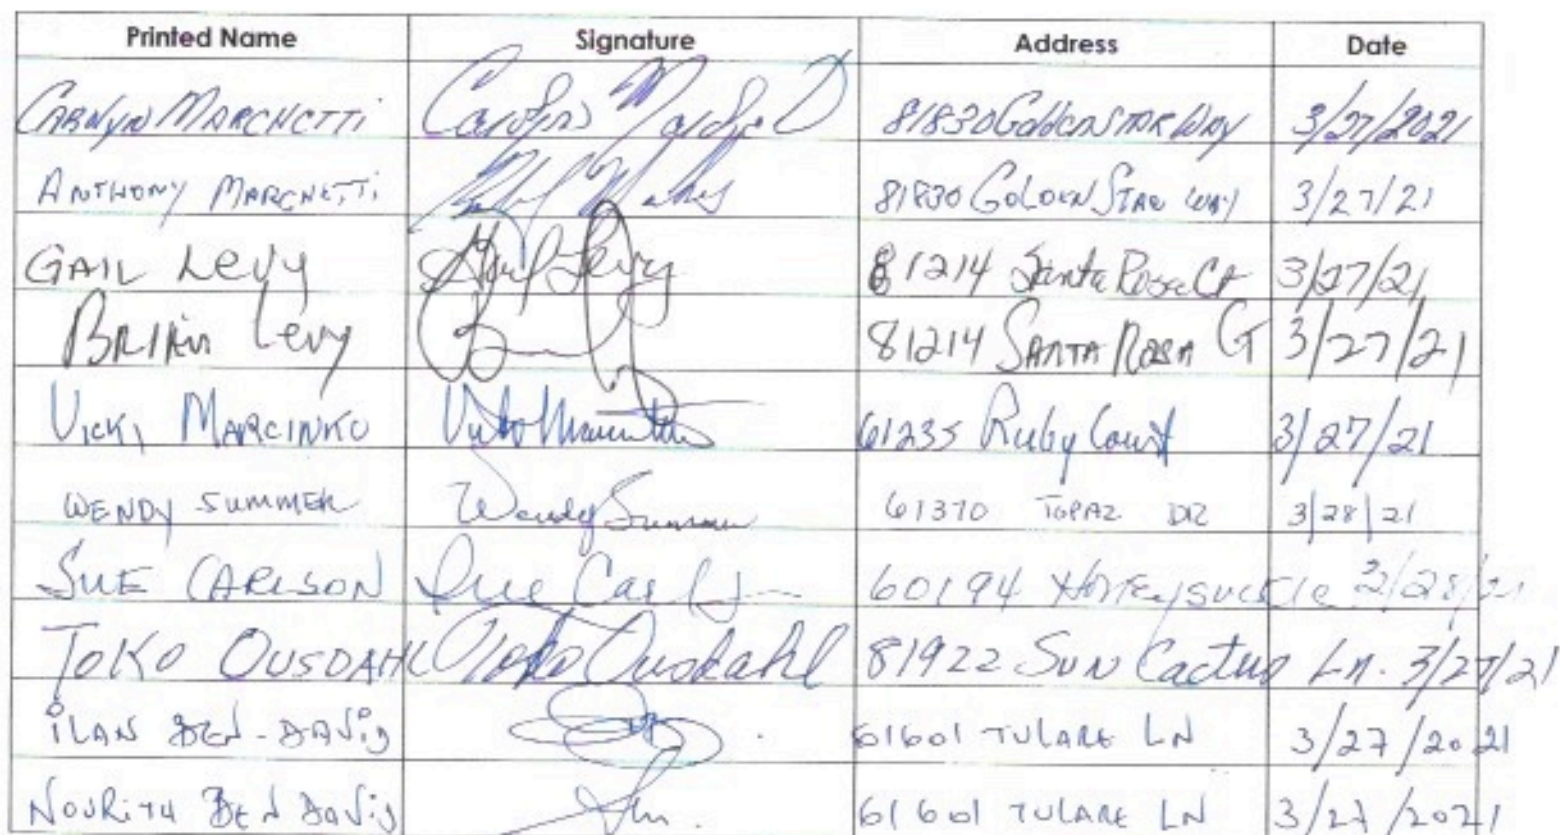 Printed Name Signature Address Date
CAROLYN MARCHETTI 81830 GOLDEN STAR WAY 3/27/2021
ANTHONY MARCHETTI 81830 GOLDEN STAR WAY 3/27/21
GAIL Levy Gail Levy 81214 Santa Rosa Ct 3/27/21
BRIAN Levy 81214 SANTA ROSA CT 3/27/21
VICKI MARCINKO 61235 Ruby Court 3/27/21
WENDY SUMMER Wendy Summer 61370 TOPAZ DR 3/28/21
SUE CARLSON Sue Carlson 60194 Honeysuckle 3/28/21
TOKO OUSDAHL Toko Ousdahl 81922 SUN Cactus Ln. 3/27/21
iLAN BEN-DAViD 61601 TULARE LN 3/27/2021
NOURiTH BEN DAViD 61601 TULARE LN 3/27/2021